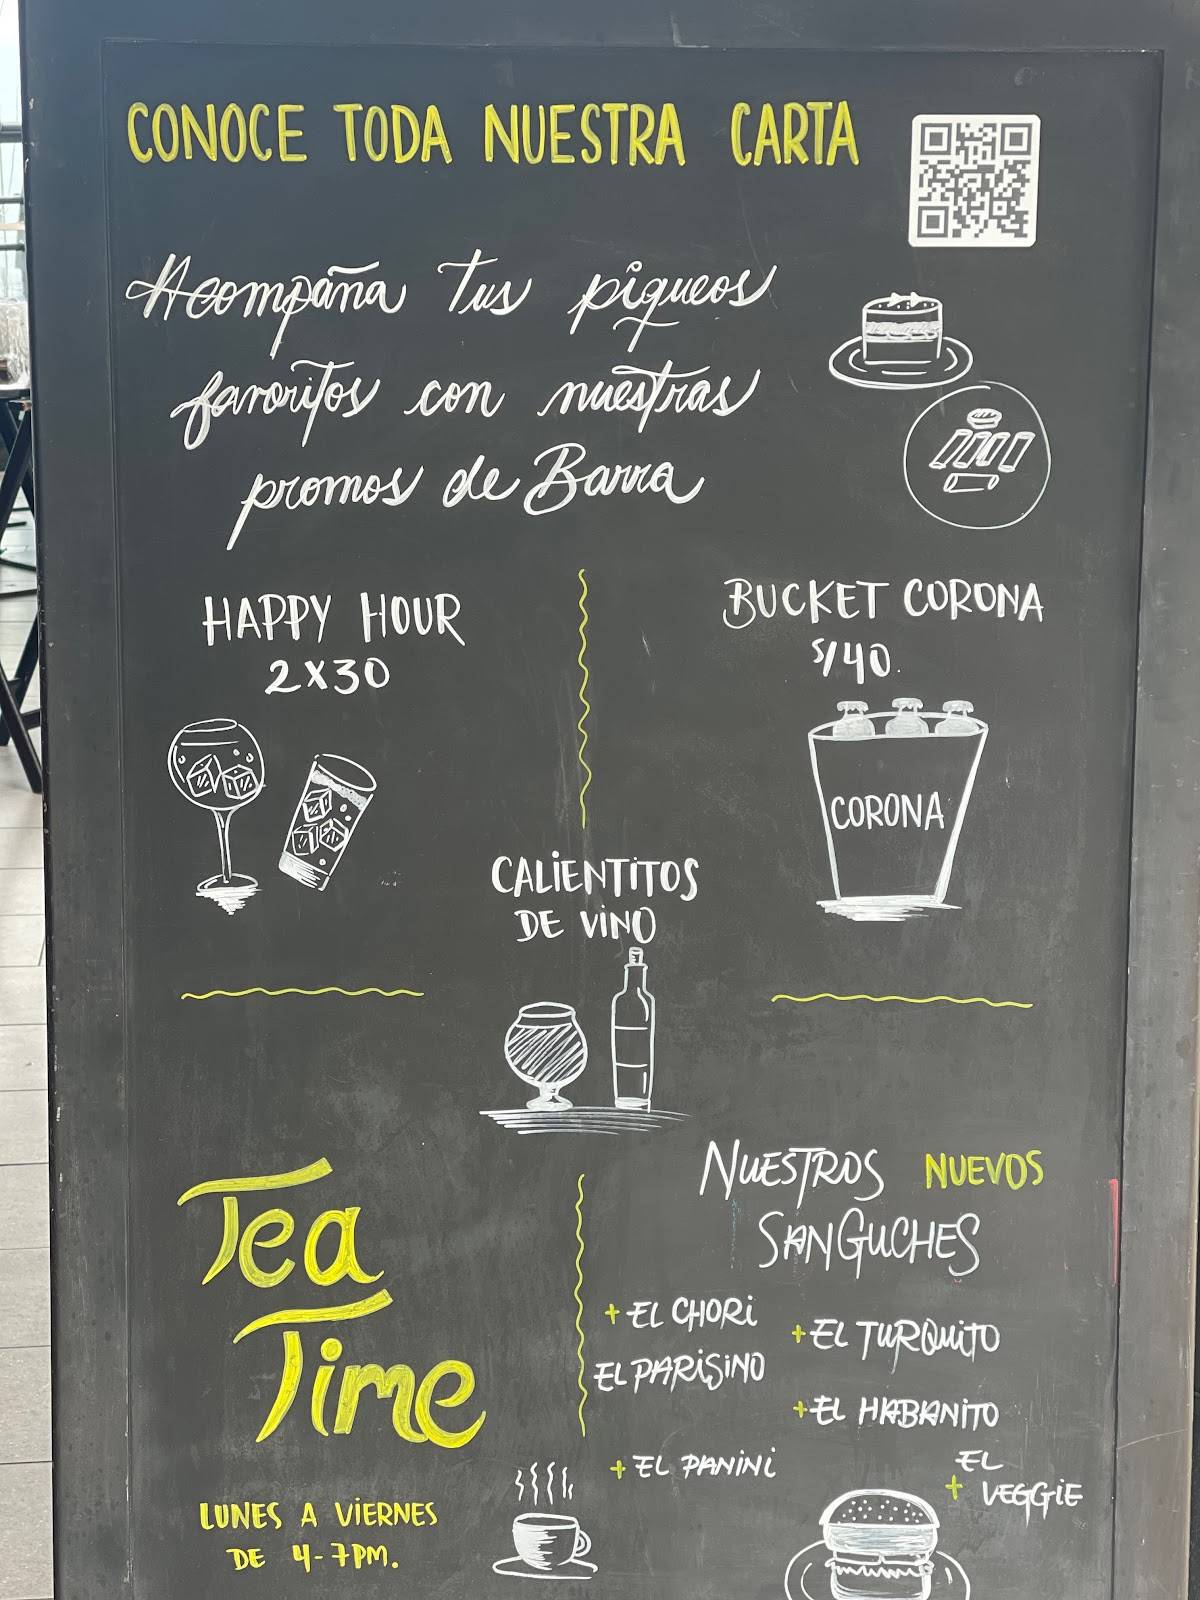 CONOCE TODA NUESTRA CARTA
Acompaña tus piqueos
favoritos con nuestras
promos de Barra
HAPPY HOUR
2X30
BUCKET CORONA
S/40.
CORONA
CALIENTITOS
DE VINO
Tea
Time
LUNES A VIERNES
DE 4-7PM.
NUESTROS NUEVOS
SANGUCHES
+ EL CHORI
EL PARISINO
+ EL PANINI
+ EL TURQUITO
+ EL HABANITO
EL
+ VEGGIE